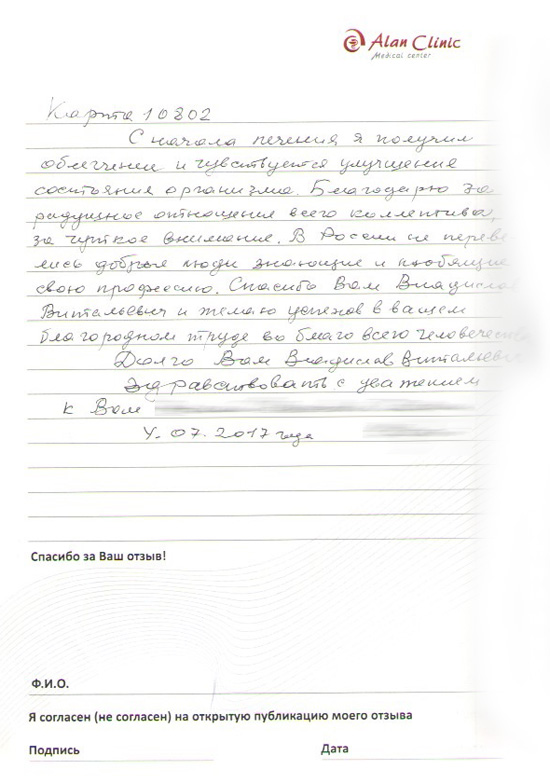 Alan Clinic
Medical center
Карта 10802
С начала лечения я получил
облегчении и чувствуется улучшение
состояния организма. Благодарю за
радушное отношения всего коллектива,
за чуткое внимание. В России не переве
лись добрые люди знающие и любящие
свою профессию. Спасибо Вам Владислав
Витальевич и желаю успехов в вашем
благородном труде во благо всего человечества
Долго Вам Владислав Витальевич
здравствовать с уважением
к Вам
4. 07. 2017 года
Спасибо за Ваш отзыв!
Ф.И.О.
Я согласен (не согласен) на открытую публикацию моего отзыва
Подпись Дата